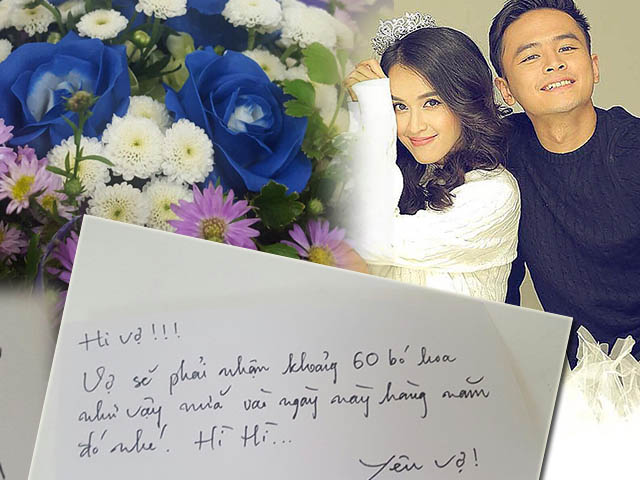 Hi vợ!!!
Vợ sẽ phải nhận khoảng 60 bó hoa
như vậy nữa vào ngày này hàng năm
đó nhé! Hì Hì...
Yêu vợ!